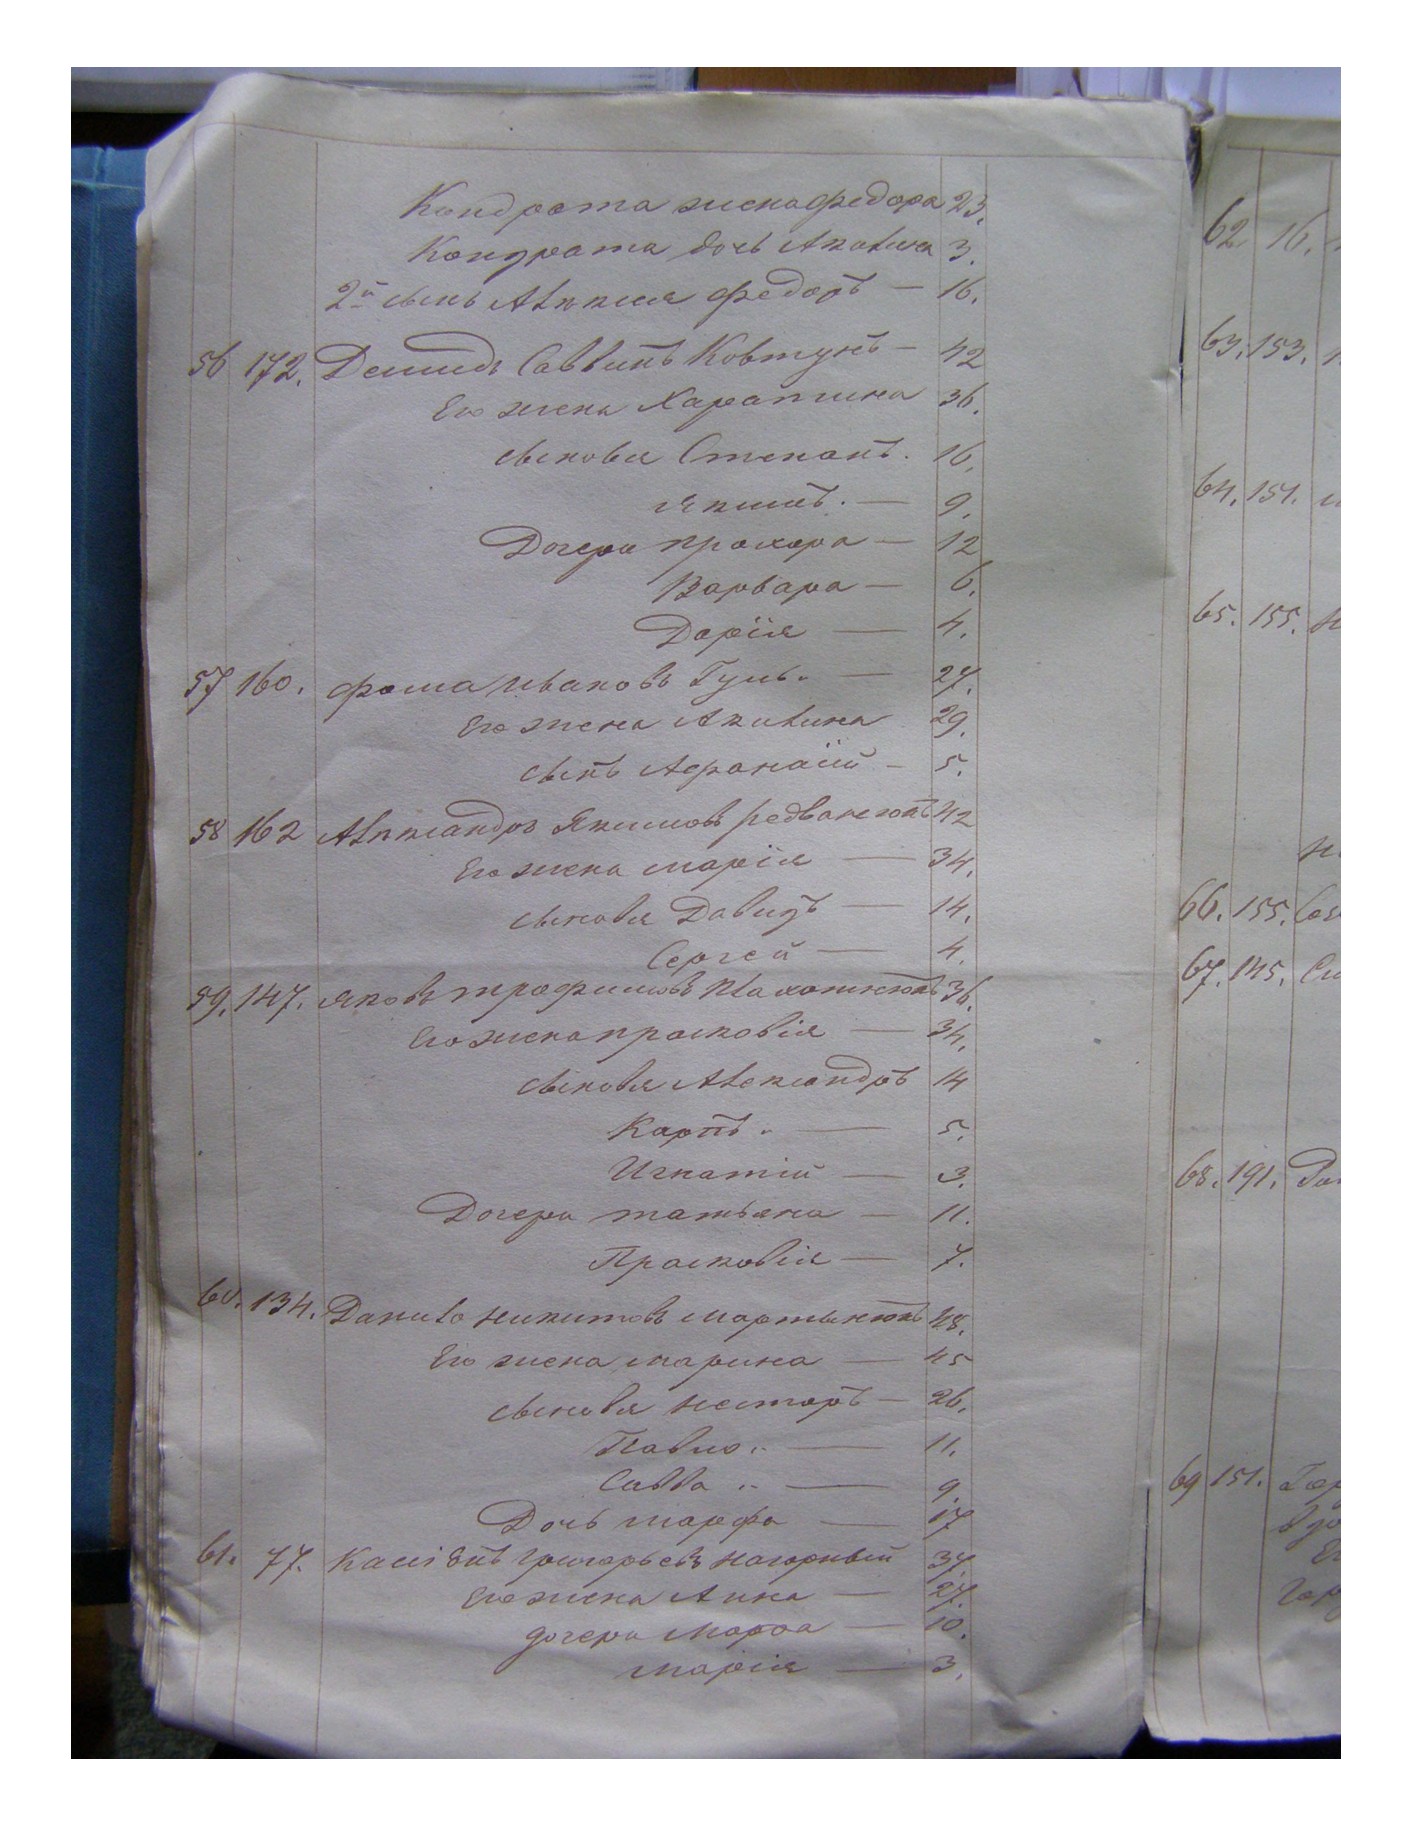 Кондрата жена федора 23.
Кондрата дочь Акилина 3.
2й сынъ Алексея федоръ — 16.
56 172. Демидъ Саввинъ Ковтунъ — 42
Его жена Харатина 36.
сыновья Степанъ. 16.
Якимъ. — 9.
Дочери прохора — 12
Варвара — 6.
Дарія — 4.
57 160. фома Ивановъ Гуль. — 27.
Его жена Акилина 29.
сынъ Афанасій — 5.
58 162 Александръ Якимовъ 42
Его жена марія — 34.
сыновья Давидъ — 14.
Сергей — 4.
59. 147. Яковъ трофимовъ 36.
Его жена прасковія — 34.
сыновья Александръ 14
Карпъ. — 5.
Игнатій — 3.
Дочери татьяна — 11.
Прасковія — 7.
60. 134. Данило никитовъ мартынюкъ 48.
Его жена марина — 45
сыновья несторъ — 26.
Павло. — 11.
Савва .. — 9.
Дочь марфа — 17
61. 77. Касіянъ григорьевъ нагорный 37.
Его жена Анна — 27.
дочери Марфа — 10.
марія — 3.
62 16.
63. 153.
64. 151.
65. 155.
66. 155.
67. 145.
68. 191.
69 151.